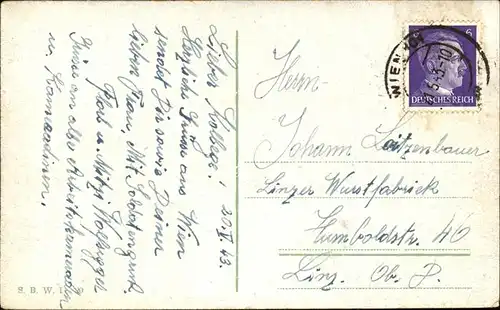 Lieber Kollege! 20.V.43.
Herzliche Grüsse aus Wien
sendet Dir sowie Deiner
lieben Frau, Mit Soldatengruß
Karl u. Mitzi
Grüsse an alle Arbeitskameraden
u. Kameradinen.
S. B. W.
WIEN
6
DEUTSCHES REICH
Herrn
Johann Loitzenbauer
Linzer Wurstfabrick
Humboldstr. 40
Linz. Ob. D.